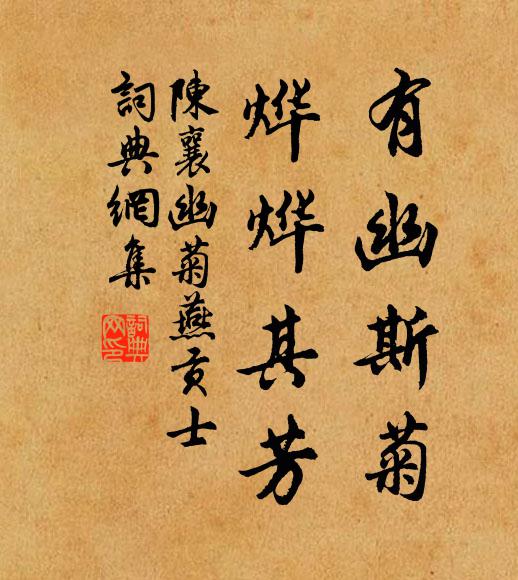 有幽斯菊
烨烨其芳
陳襄幽菊燕贡士
詞典網集
詞典网印